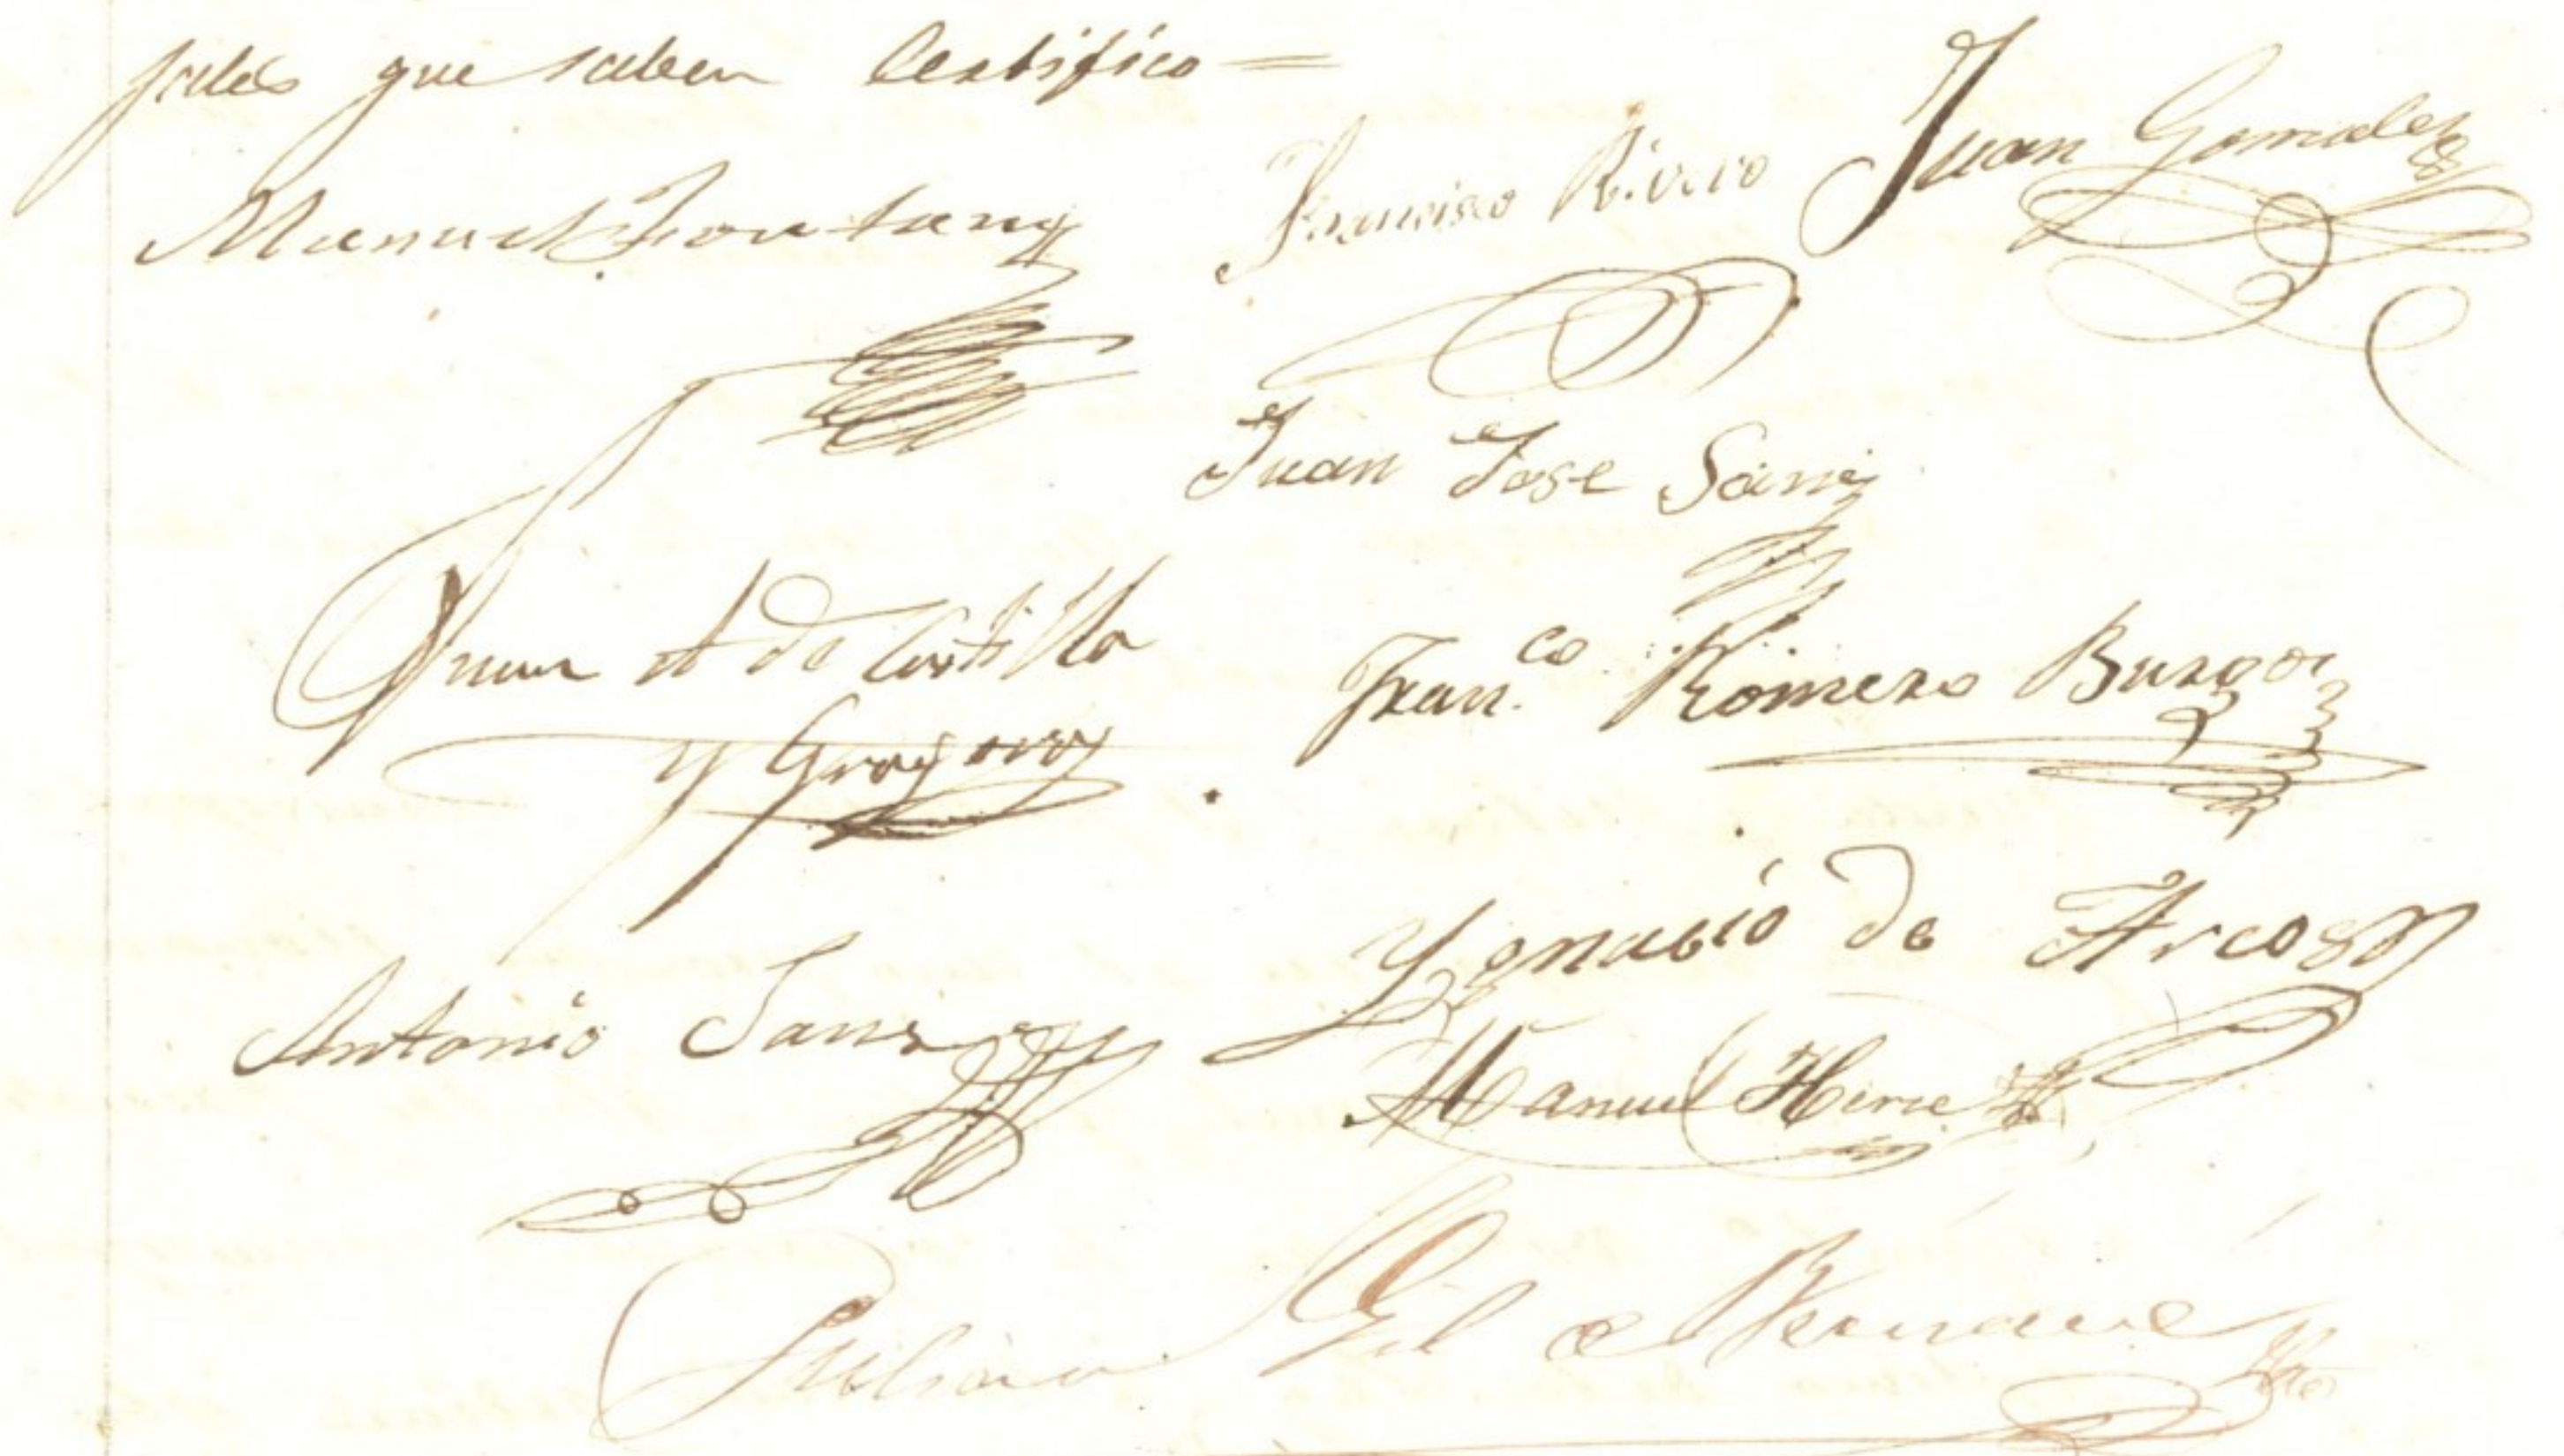 jales que saben Certifico =
Manuel Fontany Francisco Rivero Juan Gonzalez
Juan Jose Sainz
Juan A de Castilla
y Gregory
Fran.co Romero Burgos
Ygnacio de Arcos
Antonio Sanz
Manuel
Gil de Bernave